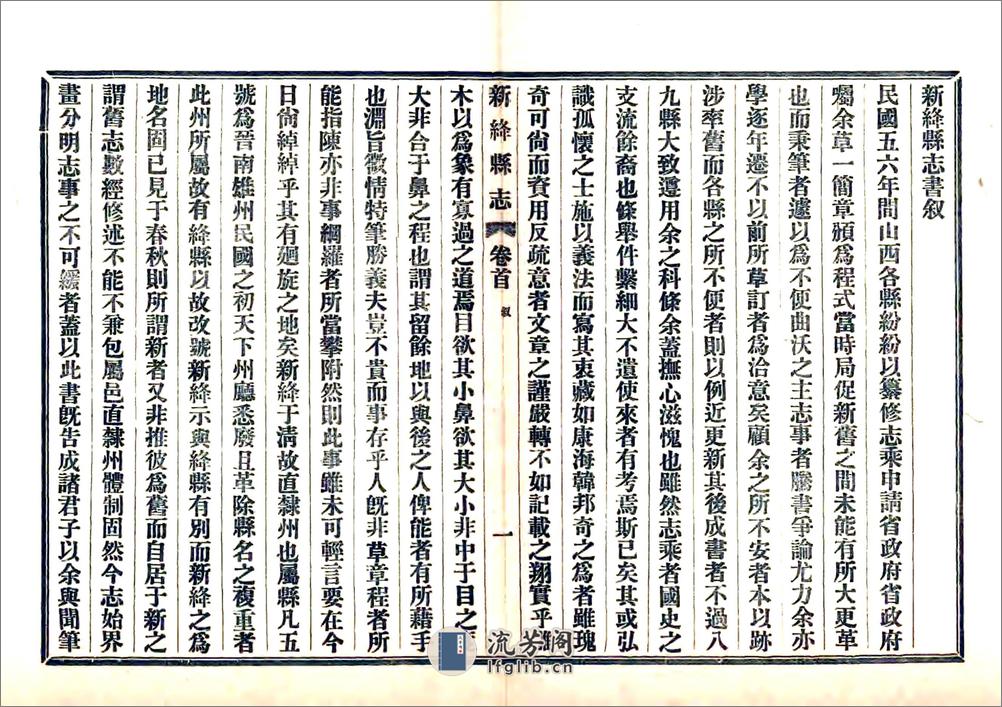 新絳縣志書叙
民國五六年間山西各縣紛紛以纂修志乘申請省政府省政府
囑余草一簡章頒爲程式當時局促新舊之間未能有所大更革
也而秉筆者遽以爲不便曲沃之主志事者騰書爭論尤力余亦
學逐年遷不以前所草訂者爲洽意矣顧余之所不安者本以跡
涉率舊而各縣之所不便者則以例近更新其後成書者不過八
九縣大致遵用余之科條余蓋撫心滋愧也雖然志乘者國史之
支流餘裔也條舉件繫細大不遺使來者有考焉斯已矣其或弘
識孤懷之士施以義法而寫其衷藏如康海韓邦奇之爲者雖瑰
奇可尙而資用反疏意者文章之謹嚴轉不如記載之翔實乎
新絳縣志 卷首 叙 一
木以爲象有寡過之道焉目欲其小鼻欲其大小非中于目之
大非合于鼻之程也謂其留餘地以與後之人俾能者有所藉手
也淵旨微情特筆勝義夫豈不貴而事存乎人旣非草章程者所
能指陳亦非事綱羅者所當攀附然則此事雖未可輕言要在今
日尙綽綽乎其有廻旋之地矣新絳于淸故直隸州也屬縣凡五
號爲晉南雄州民國之初天下州廳悉廢且革除縣名之複重者
此州所屬故有絳縣以故改號新絳示與絳縣有別而新絳之爲
地名固已見于春秋則所謂新者又非推彼爲舊而自居于新之
謂舊志數經修述不能不兼包屬邑直隸州體制固然今志始界
畫分明志事之不可緩者蓋以此書旣告成諸君子以余與聞筆
流芳閣
lfglib.cn